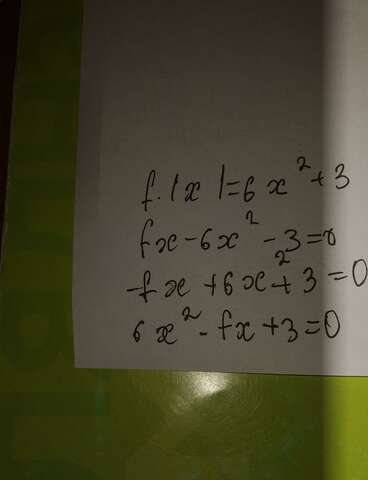 f.|x|=6x²+3
fx-6x²-3=0
-fx+6x²+3=0
6x²-fx+3=0